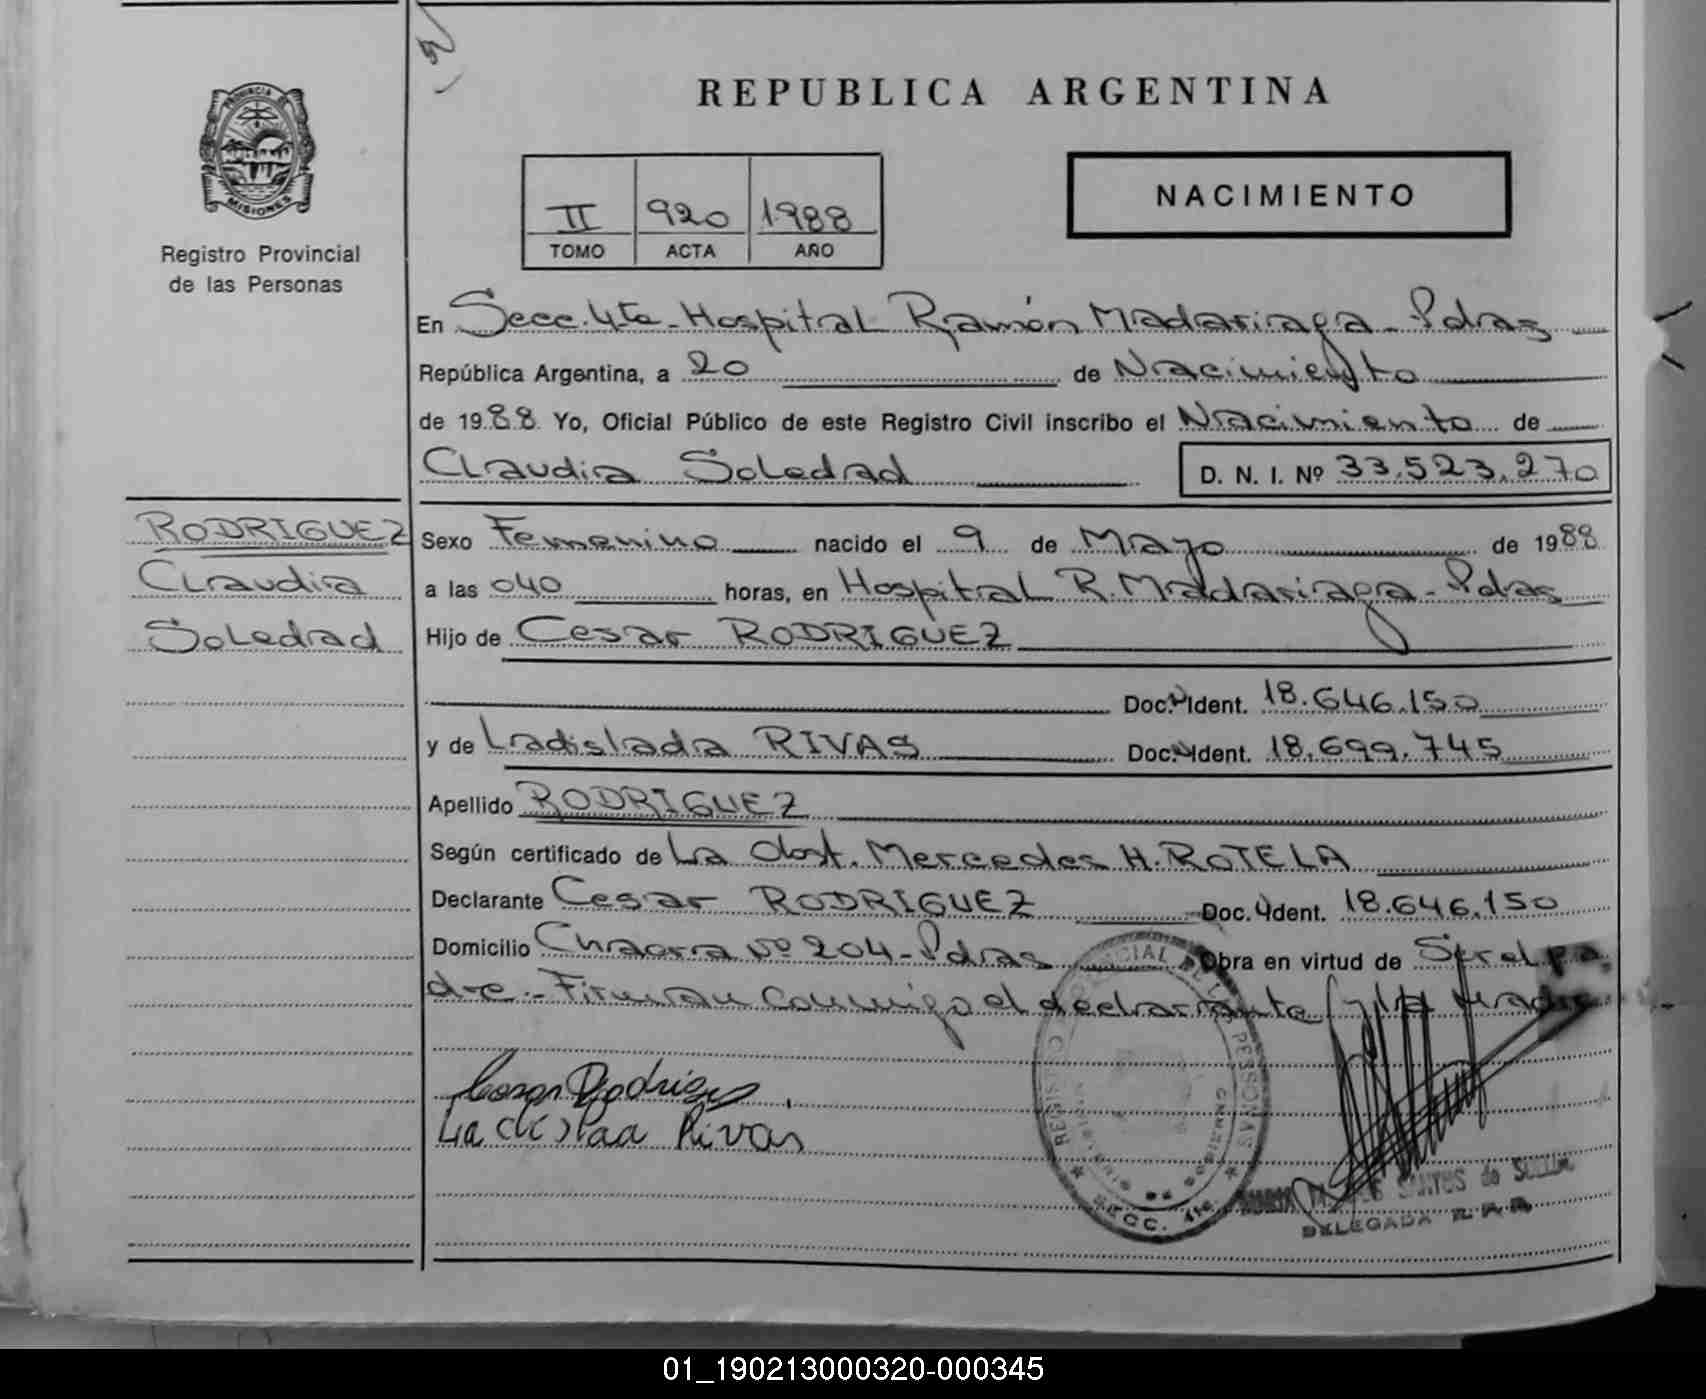 REPUBLICA ARGENTINA
PROVINCIA DE
MISIONES
Registro Provincial
de las Personas
II 920 1988
TOMO ACTA AÑO
NACIMIENTO
En Secc. 4ta - Hospital Ramón Madariaga - Pdas
República Argentina, a 20 de Nacimiento
de 1988 Yo, Oficial Público de este Registro Civil inscribo el Nacimiento de
Claudia Soledad D. N. I. Nº 33.523.270
RODRIGUEZ
Claudia
Soledad
Sexo Femenino nacido el 9 de Mayo de 1988
a las 040 horas, en Hospital R. Madariaga - Pdas
Hijo de Cesar RODRIGUEZ
Doc. Ident. 18.646.150
y de Ladislada RIVAS Doc. Ident. 18.699.745
Apellido RODRIGUEZ
Según certificado de La Obst. Mercedes H. ROTELA
Declarante Cesar RODRIGUEZ Doc. Ident. 18.646.150
Domicilio Chacra Nº 204 - Pdas Obra en virtud de Ser el pa
dre - Firman conmigo el declarante y la Madre
Cesar Rodriguez
Ladislaa Rivas
REGISTRO PERSONAS
SECC. 4ta.
SANTOS de
DELEGADA R. P. P.
01_190213000320-000345